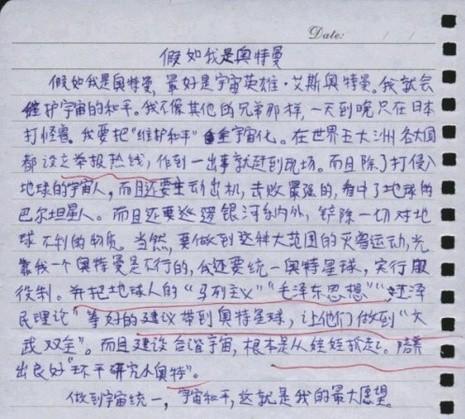 Date:
假如我是奥特曼
假如我是奥特曼,最好是宇宙英雄·艾斯奥特曼。我就会
维护宇宙的和平。我不像其他的兄弟那样,一天到晚只在日本
打怪兽。我要把“维护和平”宇宙化。在世界五大洲各大国
都设立举报热线,作到一出事就赶到现场。而且除了打侵入
地球的宇宙人,而且还要主动出机,击败嚣强的,看中了地球的
巴尔坦星人。而且还要巡逻银河系内外,铲除一切对地
球不利的物质。当然,要做到这种大范围的灭兽运动,光
靠我一个奥特曼是不行的,我还要统一奥特星球,实行服
役制。并把地球人的“马列主义”“毛泽东思想”“泽
民理论”等好的建议带到奥特星球,让他们做到“文
武双全”。而且建设合谐宇宙,根本是从娃娃抓起。培养
出良好“环平研究小奥特”。
做到宇宙统一,宇宙和平,这就是我的最大愿望。